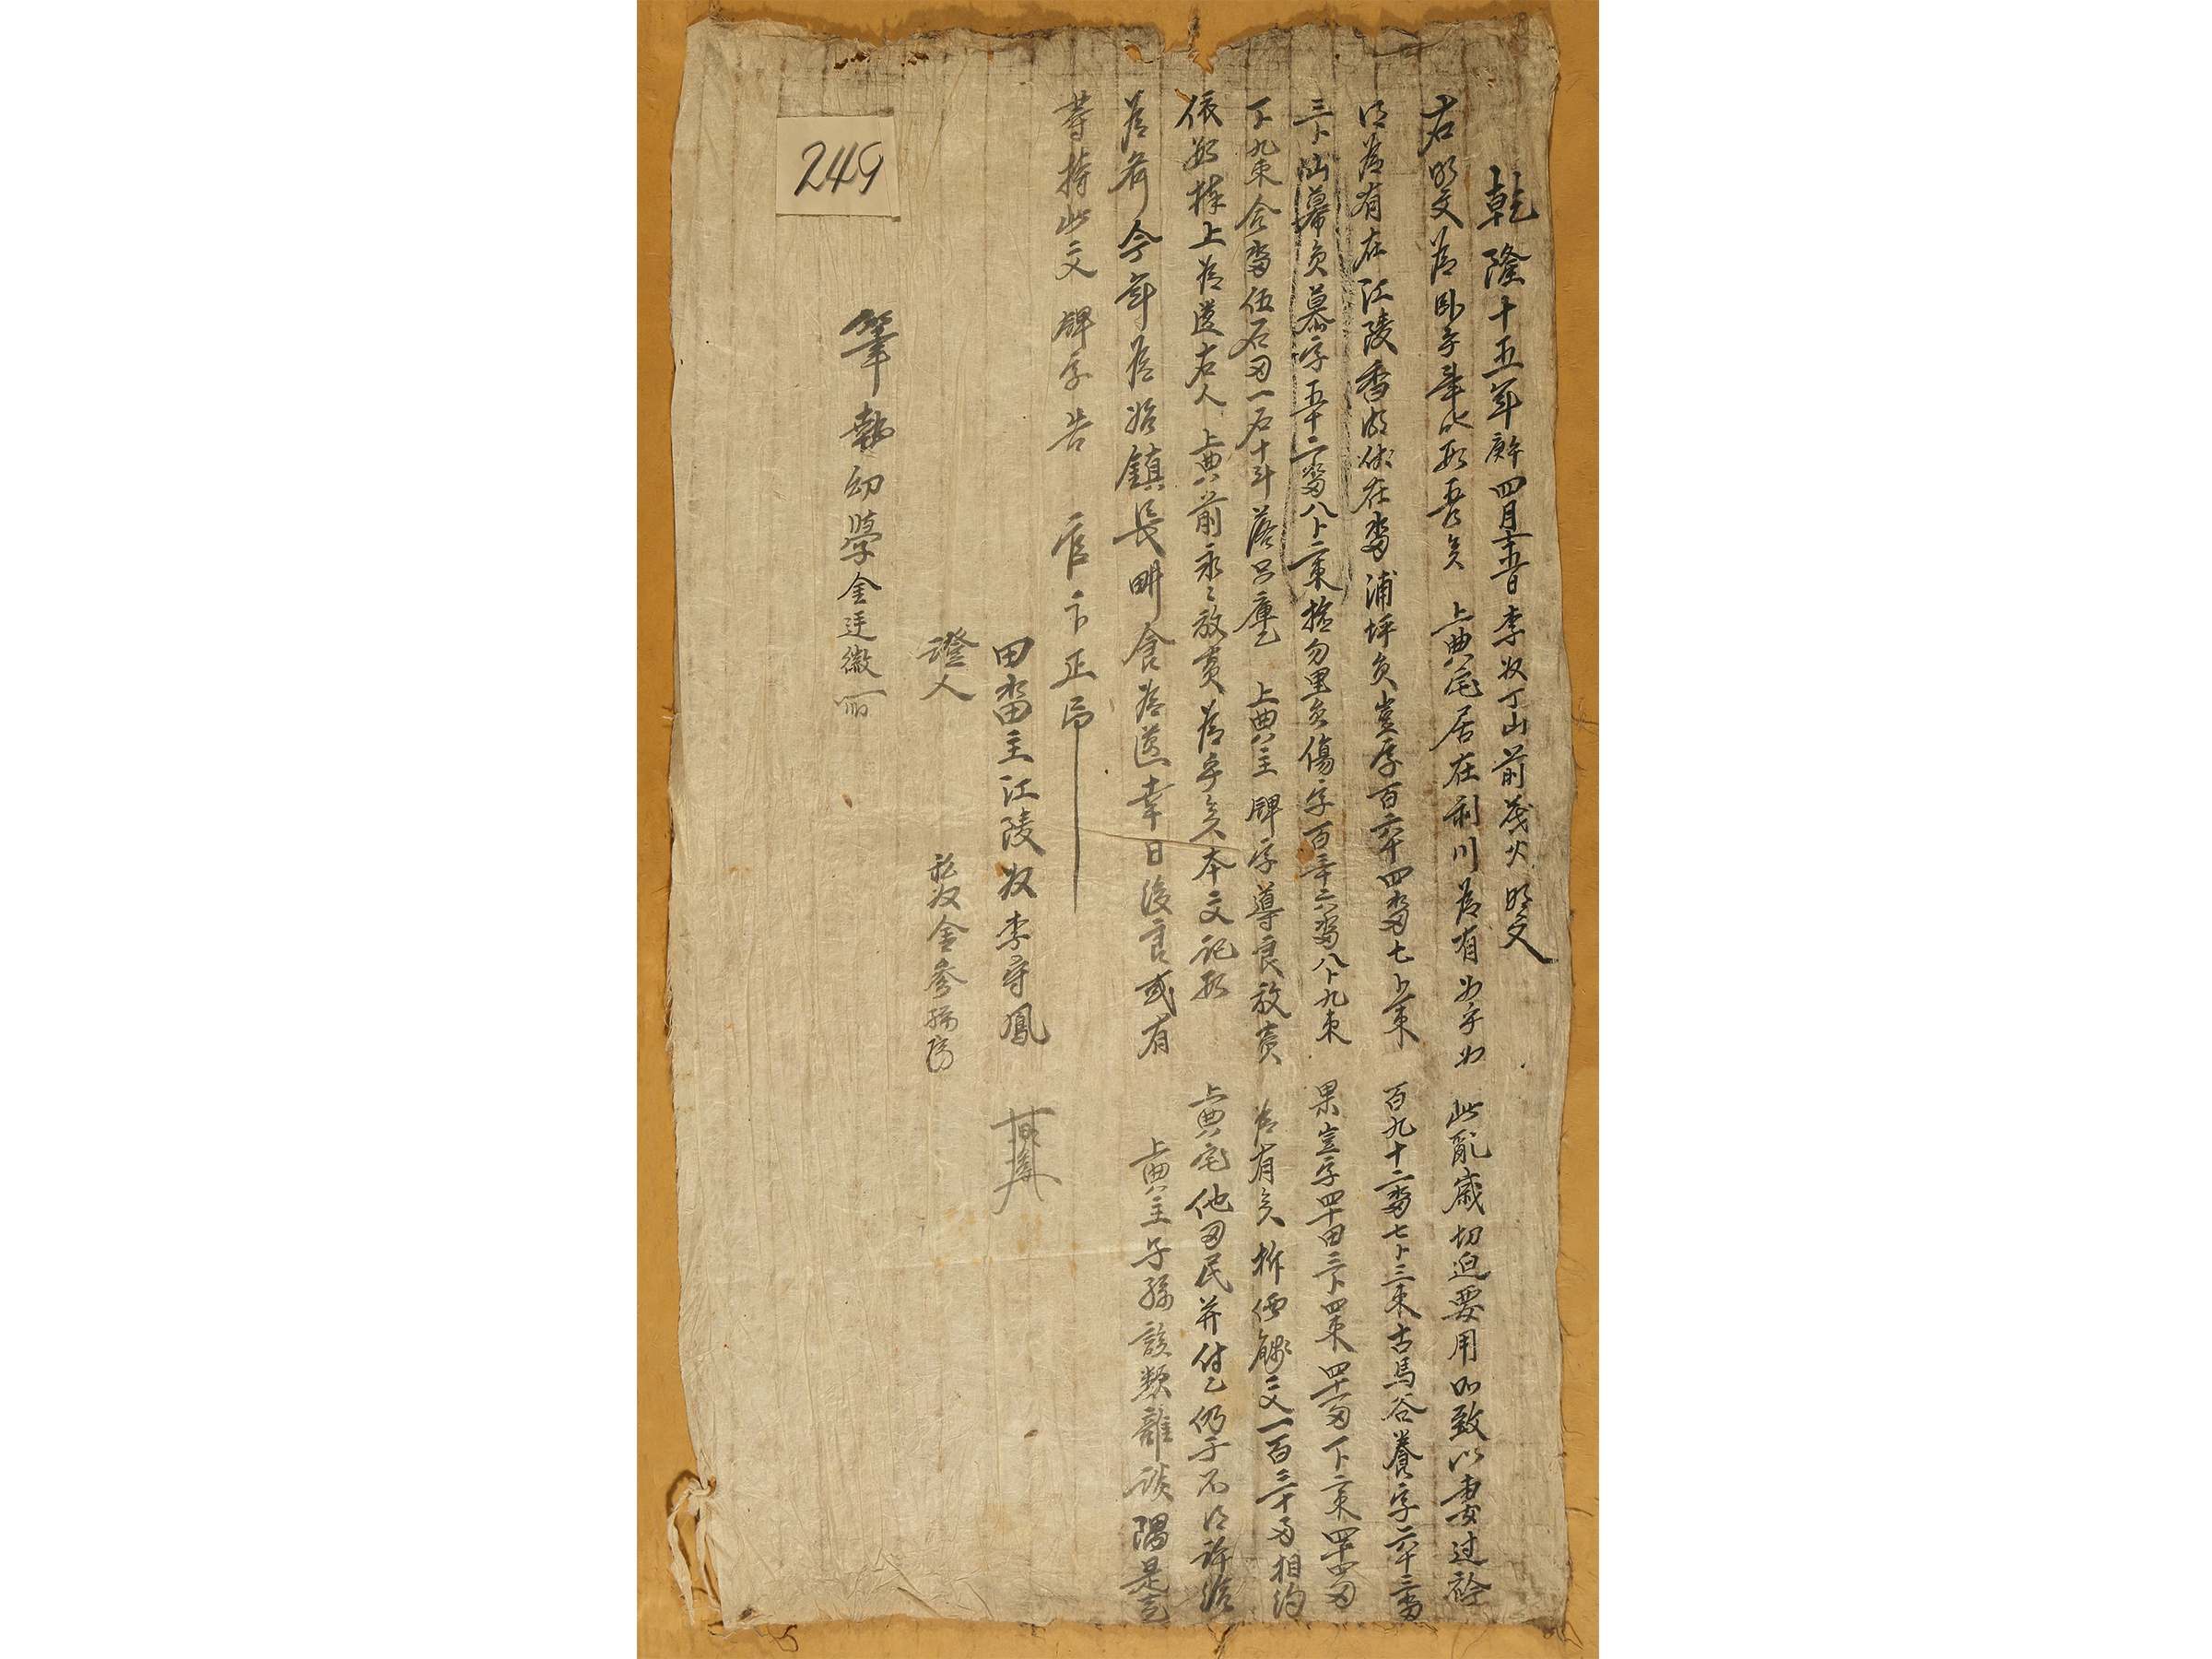 乾隆十五年庚午四月十五日李奴丁山前茂火明文
右明文爲臥乎事叱段吾矣 上典宅居在利川爲有如乎如 此亂歲切迫要用所致以妻過衿
得爲有在江陵香湖伏在畓浦坪員豈字百六十四畓七卜束 百九十二畓七卜三束古馬谷養字六十三畓
三卜山幕員慕字五十二畓八卜二束 勿里員傷字百三十六畓八卜九束 果豈字四十田三卜四束四十一田下二束四十四田
下九束合畓伍石田一石十斗落只庫乙 上典主牌字導良放賣 爲有矣折價錢文一百三十兩相約
依數捧上爲遣右人 上典前永永放賣爲乎矣本文記段 上典宅他田民幷付乙仍于不得許給
爲齊今年爲始鎭長畊食爲遣幸日後良或有 上典主子孫該類雜談隅是去
等持此文牌字告 官卞正印
田畓主江陵奴李守鳳
證人 私奴金
筆執幼學金廷徽
249